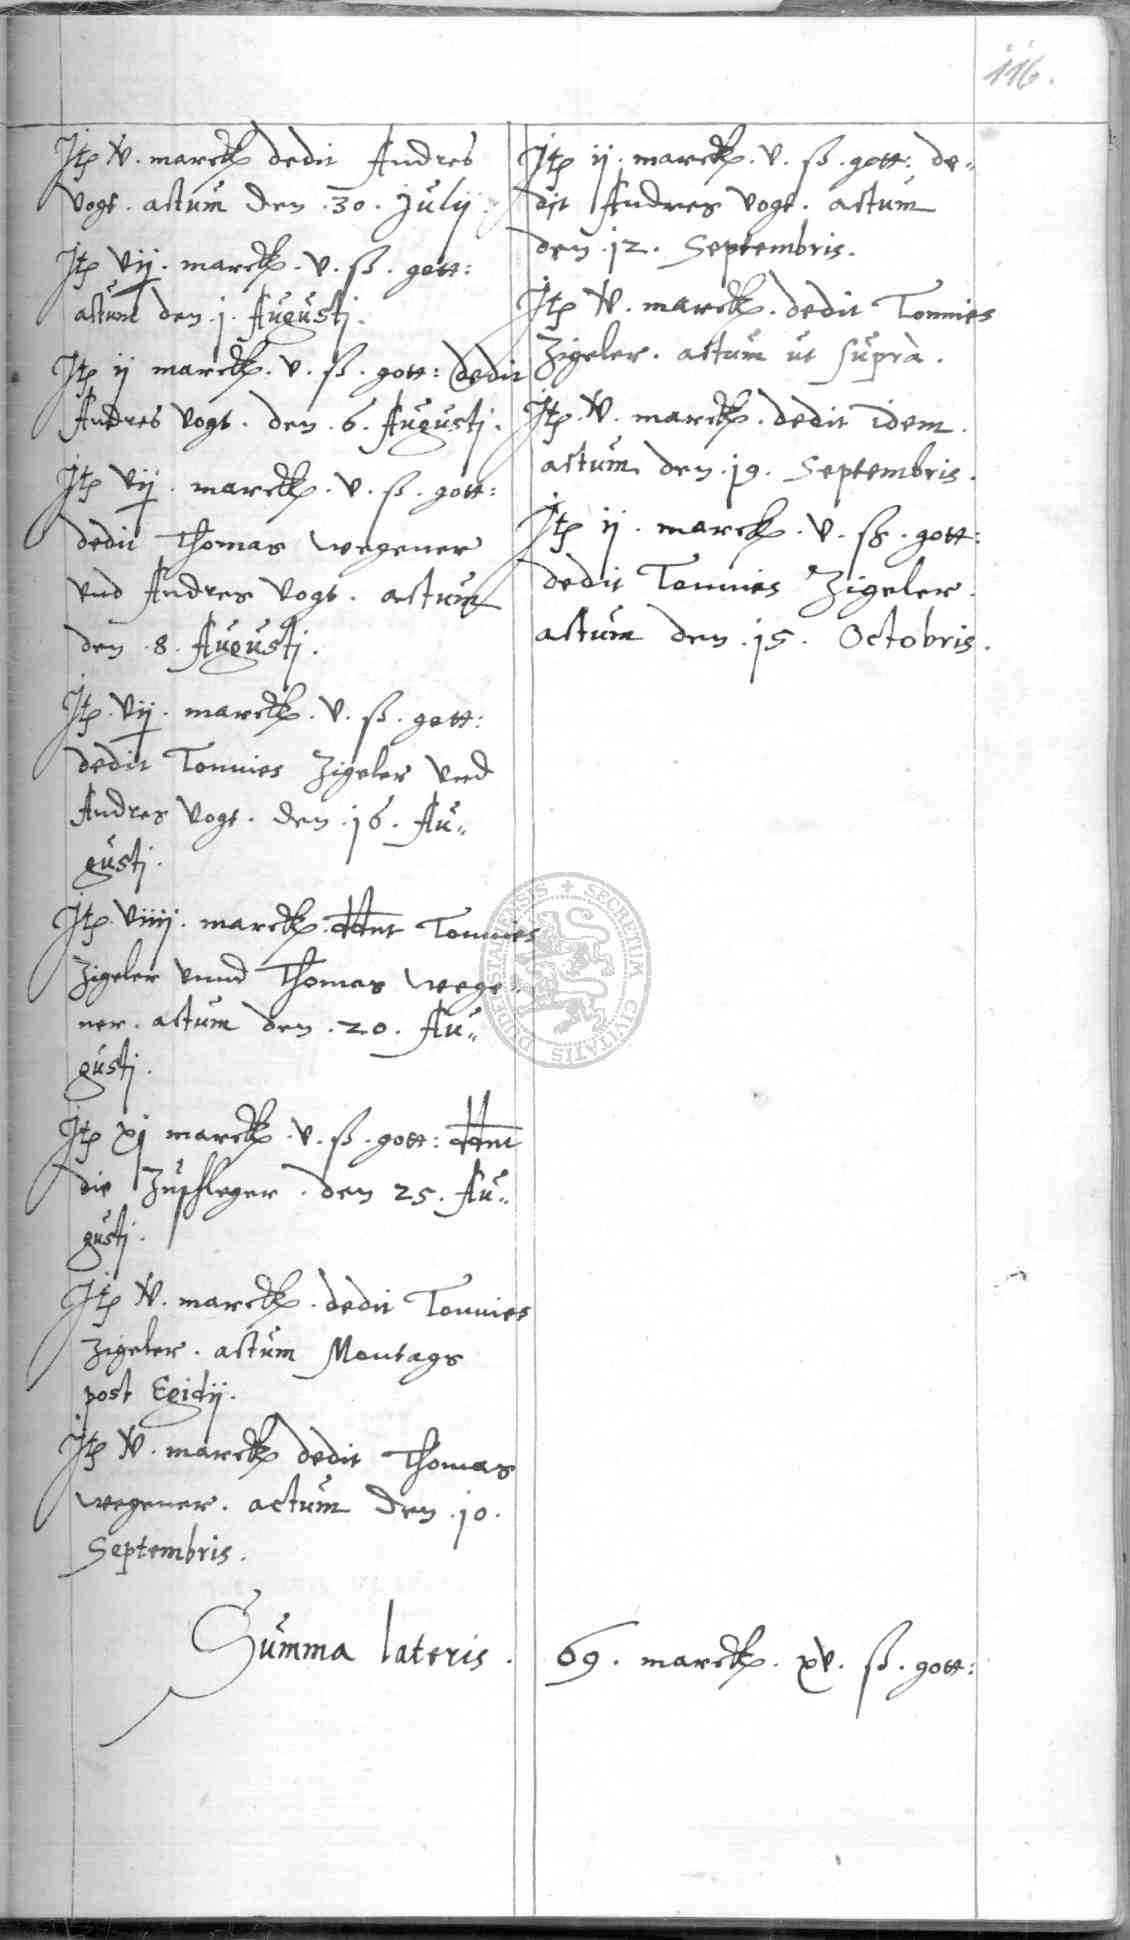 116.
Jtē V. marck dedit Andres
Vogt. actum den .30. Julij.
Jtē vij. marck. v. ß. gott:
actum den .j. Augusti.
Jtē ij marck. v. ß. gott: dedit
Andres Vogt. den .6. Augusti.
Jtē vij. marck. v. ß. gott:
dedit Thomas Wegener
vnd Andres Vogt. actum
den .8. Augusti.
Jtē vij. marck. v. ß. gott:
dedit Tonnies Zigeler vnd
Andres Vogt. den .16. Au„
gusti.
Jtē viiij. marck. ddnt Tonnies
Zigeler vnnd Thomas Wege„
ner. actum den .20. Au„
gusti.
Jtē xj marck. v. ß. gott: ddnt
die Zupfleger. den 25. Au„
gusti.
Jtē V. marck. dedit Tonnies
Zigeler. actum Montags
post Egidij.
Jtē V. marck dedit Thomas
Wegener. actum den .10.
Septembris.
Jtē ij. marck. v. ß. gott: de„
dit Andres Vogt. actum
den .12. Septembris.
Jtē V. marck. dedit Tonnies
Zigeler. actum ut suprà.
Jtē V. marck. dedit idem.
actum den .19. Septembris.
Jtē ij. marck. v. ß. gott:
dedit Tonnies Zigeler.
actum den .15. Octobris.
Summa lateris. 69. marck. xv. ß. gott:
SECRETUM CIVITATIS DUDERSTATENSIS